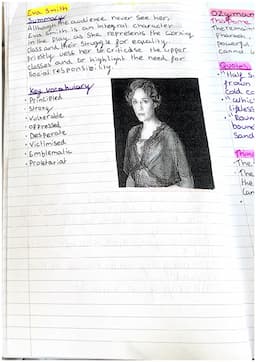 Eva Smith
Summary
Although the audience never see her,
Eva Smith is an integral character
in the play as she represents the working
class and their struggle for equality.
Priestly uses her to criticise the upper
classes and to highlight the need for
social responsibility.
Key vocabulary
· Principled
· Strong
· Vulnerable
· Oppressed
· Desperate
· Victimised
· Emblematic
· Proletariat
Ozyman
The remain
Pharaoh
powerful
Quotes
"Half s
frown
cold co
"which
lifeless
"Roun
bound
Sand
· The
· The
the